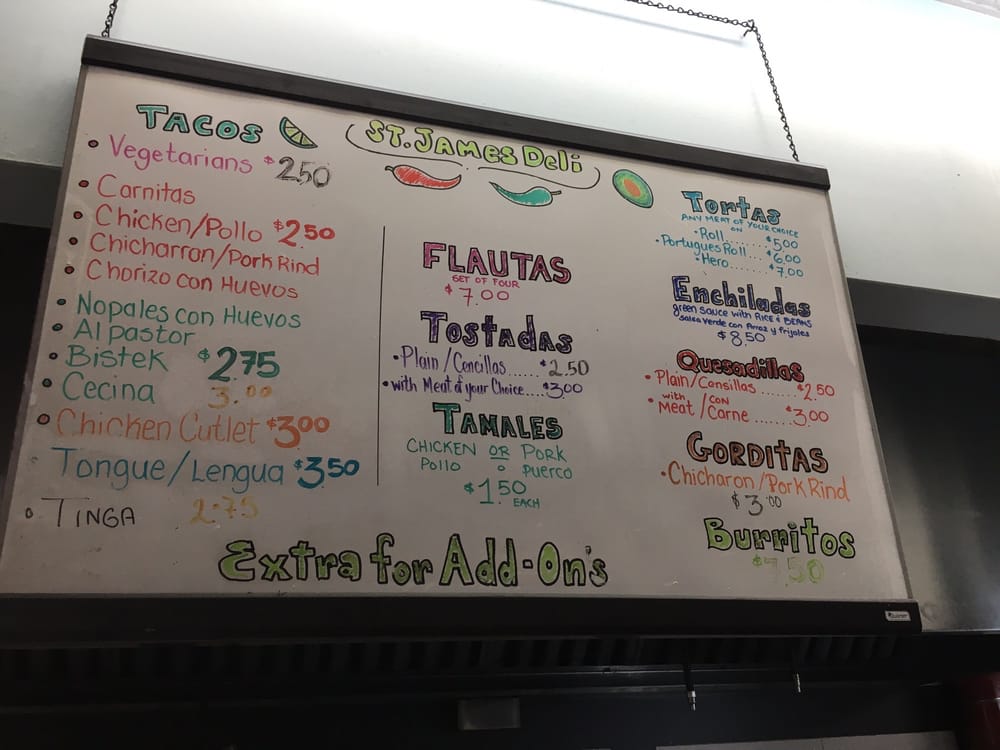 St. James Deli
Tacos
• Vegetarians $2.50
• Carnitas
• Chicken/Pollo $2.50
• Chicharron/Pork Rind
• Chorizo con Huevos
• Nopales con Huevos
• Al pastor
• Bistek $2.75
• Cecina 3.00
• Chicken Cutlet $3.00
Tongue/Lengua $3.50
• Tinga 2.75
FLAUTAS
SET OF FOUR
$7.00
Tostadas
• Plain/Cencillas...... $2.50
• with Meat of your Choice.... $3.00
TAMALES
CHICKEN OR PORK
Pollo o Puerco
$1.50
EACH
Tortas
ANY MEAT OF YOUR CHOICE
ON
• Roll........ $5.00
• Portugues Roll... $6.00
• Hero....... $7.00
Enchiladas
green sauce with RICE & BEANS
salsa verde con Arroz y frijoles
$8.50
Quesadillas
• Plain/Censillas....... $2.50
with / CON
• Meat/Carne....... $3.00
GORDITAS
• Chicharon/Pork Rind
$3.00
Burritos
$7.50
Extra for Add-On's